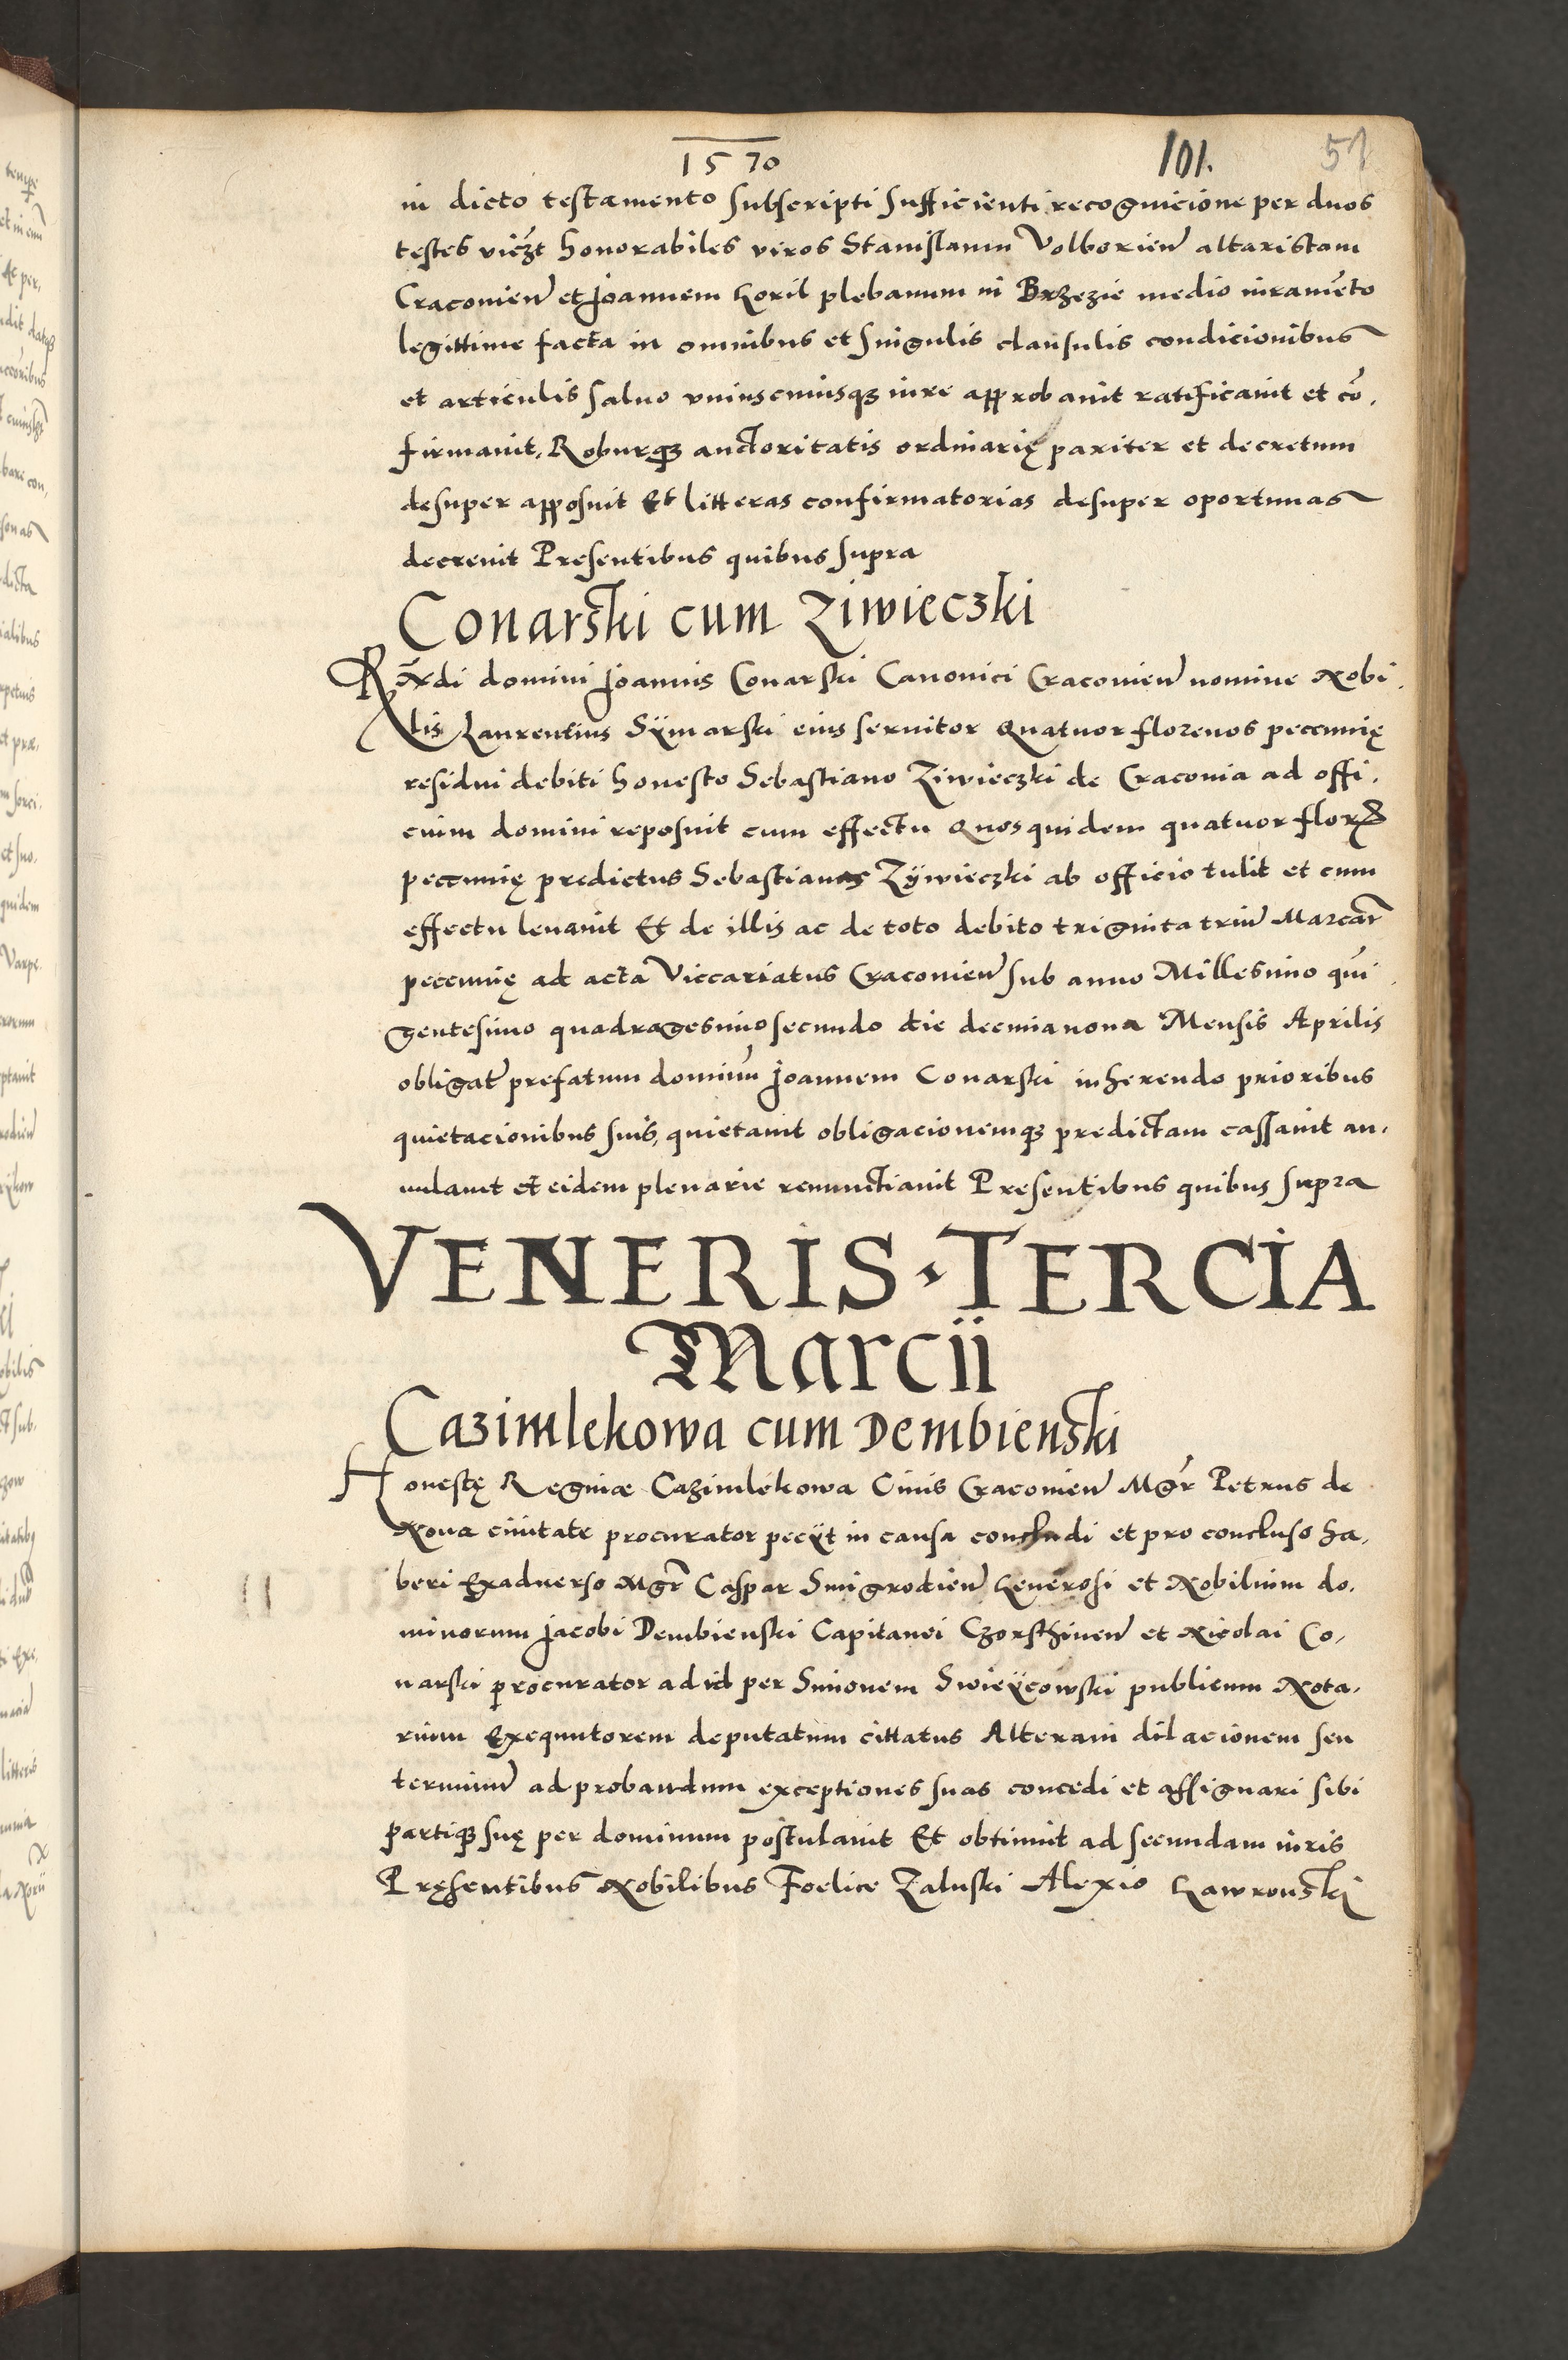 1570 101. 51
in dicto testamento subscripti sufficienti recognicione per duos
testes viczt honorabiles viros Stanislaum Volborien altaristam
Cracovien et Joannem Goril plebanum in Brzezie medio iuramẽto
legittime facta in omnibus et singulis clausulis condicionibus
et articulis salvo uniuscuiusq3 iure approbavit ratificavit et cõ,
firmavit, Roburq3 auctoritatis ordinarię pariter et decretum
desuper apposuit Et litteras confirmatorias desuper oportunas
decrevit Presentibus quibus supra
Conarski cum Ziwieczki
Rñdi domini Joannis Conarski Canonici Cracovien nomine Nobi,
lis Laurentius Sÿmarski eius servitor quatuor florenos peccunię
residui debiti honesto Sebastiano Ziwieczki de Cracovia ad offi,
cium domini reposuit cum effectu Quos quidem quatuor flor
peccunię predictus Sebastianus Zÿwieczki ab officio tulit et cum
effectu levavit Et de illis ac de toto debito triginta trium Marcar
peccunię ad acta Viccariatus Cracovien sub anno Millesimo qui,
gentesimo quadragesimosecundo die decimanona Mensis Aprilis
obligat prefatum dominum Joannem Conarski inherendo prioribus
quietacionibus suis, quietavit obligacionemq3 predictam cassavit an,
nulavit et eidem plenarie renunctiavit Presentibus quibus supra
VENERIS TERCIA
Marcii
Cazimlekowa cum Dembienski
Honestę Reginae Cazimlekowa Civis Cracovien Mgr Petrus de
Nova civitate procurator peciit in causa concludi et pro concluso ha,
beri Exadverso Mgr Caspar Smigrodien Generosi et Nobilium do,
minorum Jacobi Dembienski Capitanei Czorsthinen et Nicolai Co,
narski procurator ad id per Simonem Swieÿcowski publicum Nota,
rium Exequutorem deputatum cittatus Alteram dilacionem seu
terminum ad probandum exceptiones suas concedi et assignari sibi
partiq3 suę per dominum postulavit Et obtinuit ad secundam iuris
Pręsentibus Nobilibus Foelice Zaluski Alexio Gawronski